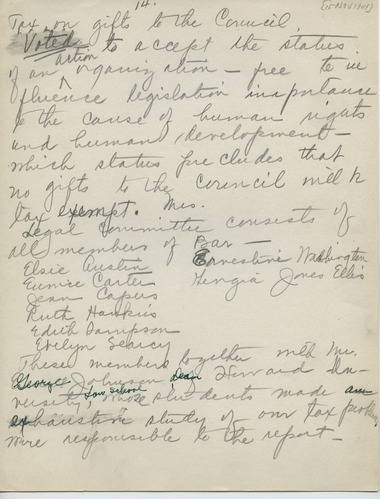 14.
(15 Nov 1944)
Tax on gifts to the Council
Voted to accept the status
of an action organization – free to in
fluence legislation in importance
to the cause of human rights
and human development –
which status precludes that
no gifts to the Council will be
tax exempt. Mrs.
Legal Committee consists of
all members of Bar –
Elsie Austin Ernestine Washington
Eunice Carter Georgia Jones Ellis
Jean Capers
Ruth Hawkins
Edith Sampson
Evelyn Searcy
These members together with Mr.
George Johnson Dean Howard Uni-
versity Law School whose students made an
exhaustive study of our tax problem
were responsible to the report –